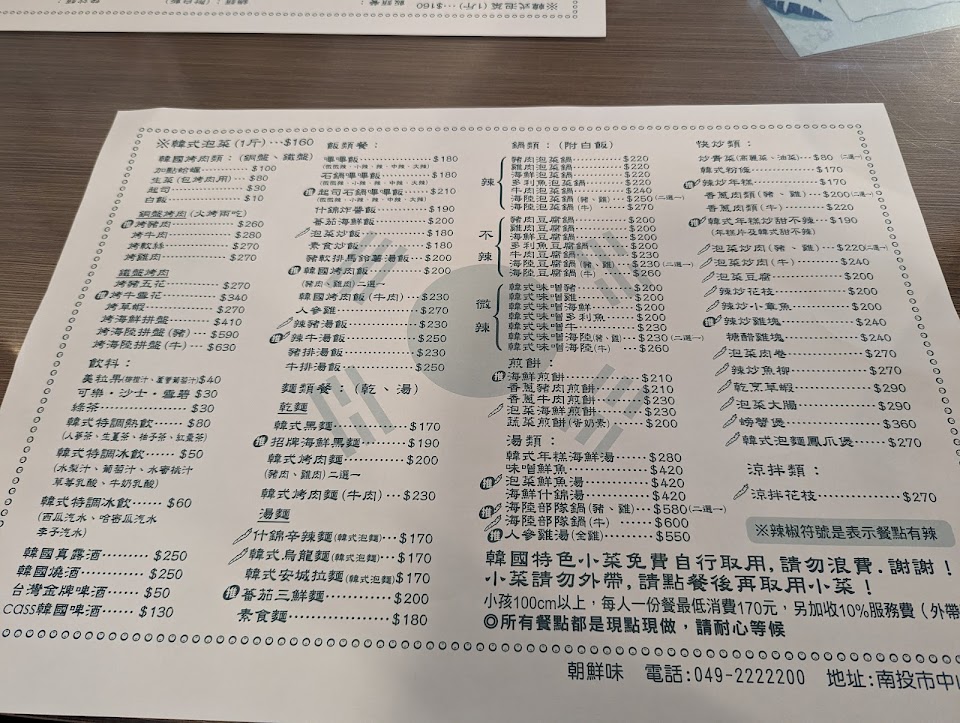 ※韓式泡菜(1斤)…$160
※韓式泡菜(1斤)…$160
韓國烤肉類：(銅盤、鐵盤)
加點蛤蠣……$100
生菜(包烤肉用)…$80
起司……$30
白飯……$10
銅盤烤肉(火烤兩吃)
推 烤豬肉……$260
烤牛肉……$280
烤軟絲……$270
烤雞肉……$270
鐵盤烤肉
烤豬五花……$270
推 烤牛雪花……$340
烤草蝦……$270
烤海鮮拼盤……$410
烤海陸拼盤(豬)…$590
烤海陸拼盤(牛)…$630
飲料：
美粒果(柳橙汁、蘆薈葡萄汁)$40
可樂・沙士・雪碧 $30
綠茶……$30
韓式特調熱飲……$80
(人蔘茶、生薑茶、柚子茶、紅棗茶)
韓式特調冰飲……$50
(水梨汁、葡萄汁、水蜜桃汁
草莓乳酸、牛奶乳酸)
韓式特調冰飲……$60
(西瓜汽水、哈密瓜汽水
李子汽水)
韓國真露酒……$250
韓國燒酒……$250
台灣金牌啤酒……$50
CASS韓國啤酒……$130
飯類餐：
嗶嗶飯……$180
(微微辣、小辣、辣、中辣、大辣)
石鍋嗶嗶飯……$180
(微微辣、小辣、辣、中辣、大辣)
推 起司石鍋嗶嗶飯…$210
(微微辣、小辣、辣、中辣、大辣)
什錦炸醬飯……$190
蕃茄海鮮飯……$200
泡菜炒飯……$180
素食炒飯……$180
豬軟排馬鈴薯湯飯…$200
推 韓國烤肉飯……$200
(豬肉、雞肉)二選一
韓國烤肉飯(牛肉)…$230
人參雞……$270
辣豬湯飯……$230
推 辣牛湯飯……$250
豬排湯飯……$230
牛排湯飯……$250
麵類餐：(乾、湯)
乾麵
韓式黑麵……$170
推 招牌海鮮黑麵……$190
韓式烤肉麵……$200
(豬肉、雞肉)二選一
韓式烤肉麵(牛肉)…$230
湯麵
什錦辛辣麵(韓式泡麵)…$170
韓式烏龍麵(韓式泡麵)…$170
韓式安城拉麵(韓式泡麵)$170
推 蕃茄三鮮麵……$200
素食麵……$180
鍋類：(附白飯)
辣
豬肉泡菜鍋……$220
雞肉泡菜鍋……$220
海鮮泡菜鍋……$220
多利魚泡菜鍋……$220
牛肉泡菜鍋……$240
海陸泡菜鍋(豬、雞)…$250(二選一)
海陸泡菜鍋(牛)…$270
不辣
豬肉豆腐鍋……$200
雞肉豆腐鍋……$200
海鮮豆腐鍋……$200
多利魚豆腐鍋……$200
牛肉豆腐鍋……$230
海陸豆腐鍋(豬、雞)…$230(二選一)
海陸豆腐鍋(牛)…$260
微辣
韓式味噌豬……$200
韓式味噌雞……$200
韓式味噌海鮮……$200
韓式味噌多利魚……$200
韓式味噌牛……$230
韓式味噌海陸(豬、雞)…$230(二選一)
韓式味噌海陸(牛)…$260
煎餅：
推 海鮮煎餅……$210
香蔥豬肉煎餅……$210
香蔥牛肉煎餅……$230
泡菜海鮮煎餅……$230
蔬菜煎餅(蛋奶素)……$200
湯類：
韓式年糕海鮮湯……$280
味噌鮮魚……$420
推 泡菜鮮魚湯……$420
海鮮什錦湯……$420
推 海陸部隊鍋(豬、雞)…$580(二選一)
海陸部隊鍋(牛)……$600
推 人參雞湯(全雞)……$550
快炒類：
炒青菜(高麗菜、油菜)…$80(二選一)
韓式粉條……$170
推 辣炒年糕……$170
香蔥肉類(豬、雞)…$200(二選一)
香蔥肉類(牛)……$220
推 韓式年糕炒甜不辣…$190
(年糕片及韓式甜不辣)
泡菜炒肉(豬、雞)…$220(二選一)
泡菜炒肉(牛)……$240
泡菜豆腐……$200
辣炒花枝……$200
辣炒小章魚……$200
推 辣炒雞塊……$240
糖醋雞塊……$240
泡菜肉卷……$270
辣炒魚柳……$270
乾烹草蝦……$290
泡菜大腸……$290
螃蟹煲……$360
韓式泡麵鳳爪煲…$270
涼拌類：
涼拌花枝……$270
※辣椒符號是表示餐點有辣
韓國特色小菜免費自行取用,請勿浪費.謝謝！
小菜請勿外帶,請點餐後再取用小菜！
小孩100cm以上，每人一份餐最低消費170元，另加收10%服務費（外帶
◎所有餐點都是現點現做，請耐心等候
朝鮮味 電話:049-2222200 地址:南投市中山